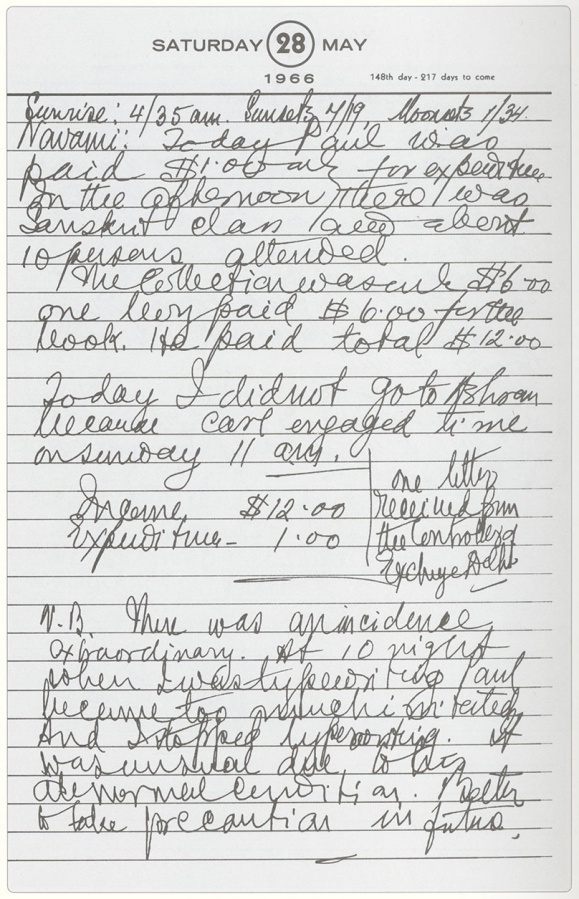 SATURDAY 28 MAY
1966
148th day - 217 days to come
Sunrise: 4/35 am. Sunsets 7/19, Moonsets 1/34.
Navami: Today Paul was
paid $1.00 only for expenditure.
In the afternoon there was
Sanskrit class and about
10 persons attended.
The Collection was only $6.00
one levy paid $6.00 for the
book. He paid total $12.00
Today I did not go to Ashram
because Carl engaged time
on sunday 11 am.
one letter
Income $12.00
received from
Expenditure - 1.00
the Controller of
Exchange Delhi
N.B There was an incidence
extraordinary. At 10 night
when I was typewriting Paul
became too much irritated
and I stopped typewriting. It
was unusual due to his
abnormal condition. Better
to take precaution in future.